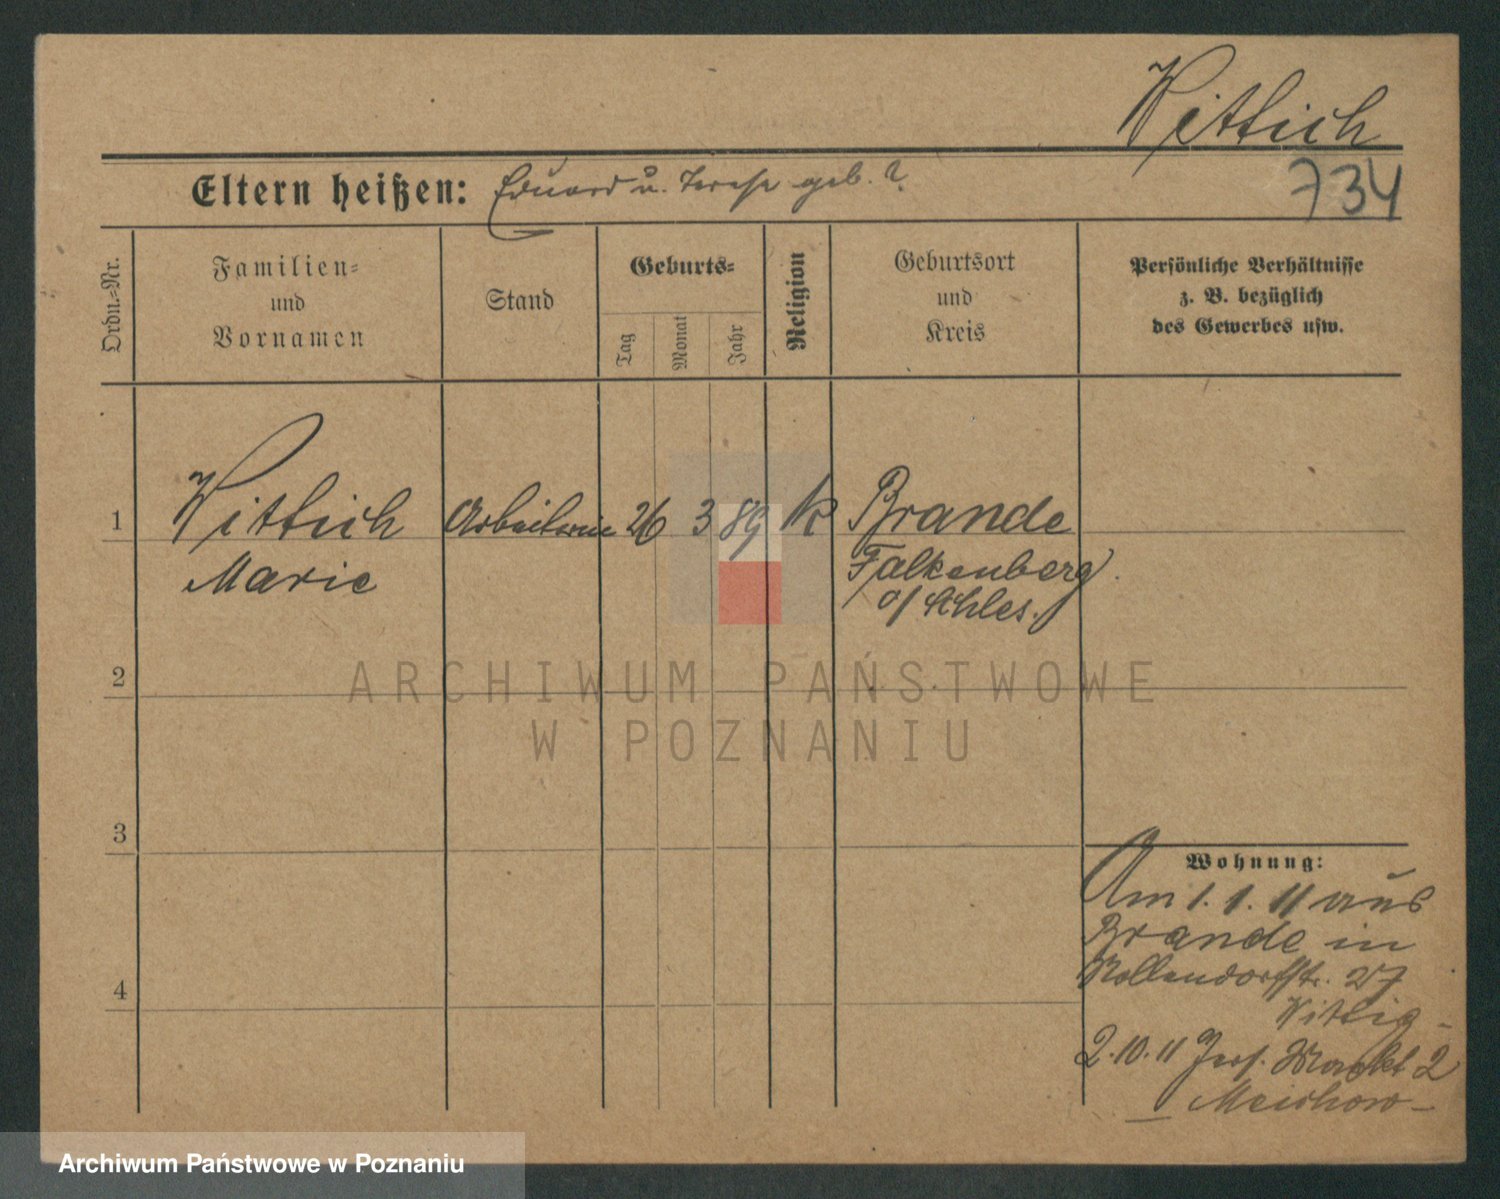 Wittich
734
Eltern heißen: Eduard u. Terese geb. ?
Ordn.=Nr.
Familien=
und
Vornamen
Stand
Geburts=
Tag
Monat
Jahr
Religion
Geburtsort
und
Kreis
Persönliche Verhältnisse
z. B. bezüglich
des Gewerbes usw.
1 Wittich Arbeiterin 26 3 89 k Brande
Marie Falkenberg
o/Schles.
2
ARCHIWUM PAŃSTWOWE
W POZNANIU
3
Wohnung:
Am 1. 1. 11 aus
Brande in
Nollendorfstr. 27
Wittig -
4
2.10.11 Markt 2
Archiwum Państwowe w Poznaniu